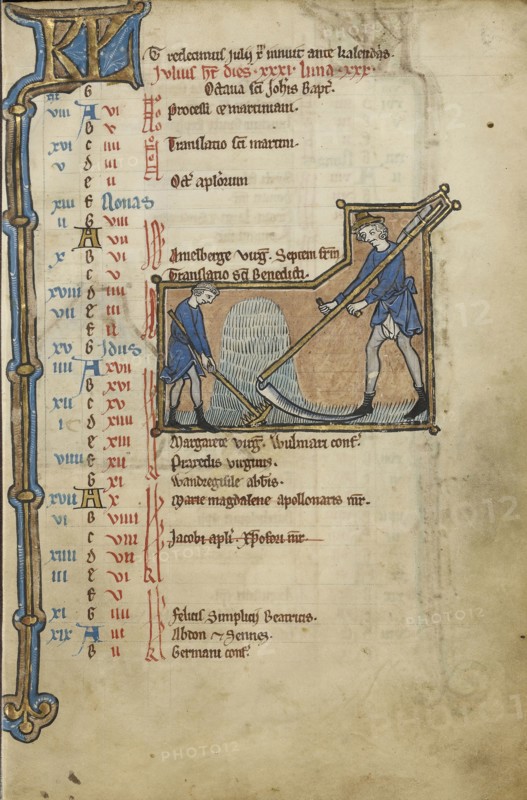 KL
T redecimus Julij x' minuit ante kalendas.
Julius ht dies .xxxi. luna .xxx.
G Octaua sci Johis Bapt'.
viii A vi Processi & martiniani.
B v
xvi c iiii Translatio sci martini.
v d iii
e ii Oct' aplorum
xiii f Nonas
ii G viii
A vii
x B vi Amelberge uirg. Septem frm
c v Translatio sci Benedicti.
xviii d iiii
vii e iii
f ii
xv G Idus
iiii A xvii
B xvi
xii c xv
i d xiiii
e xiii Margarete uirg. Wulmari conf'
viiii f xii Praxedis uirginis.
G xi Wandregisile abbis.
xvii A x Marie magdalene apollonaris mr.
vi B viiii
c viii Jacobi apli. Xpofori mr.
xiiii d vii
iii e vi
f v
xi G iiii Felicis Simplicij Beatricis.
xix A iii Abdon & Sennes.
B ii Germani conf'
PHOTO12
PHOTO12
PHOTO12
PHOTO12